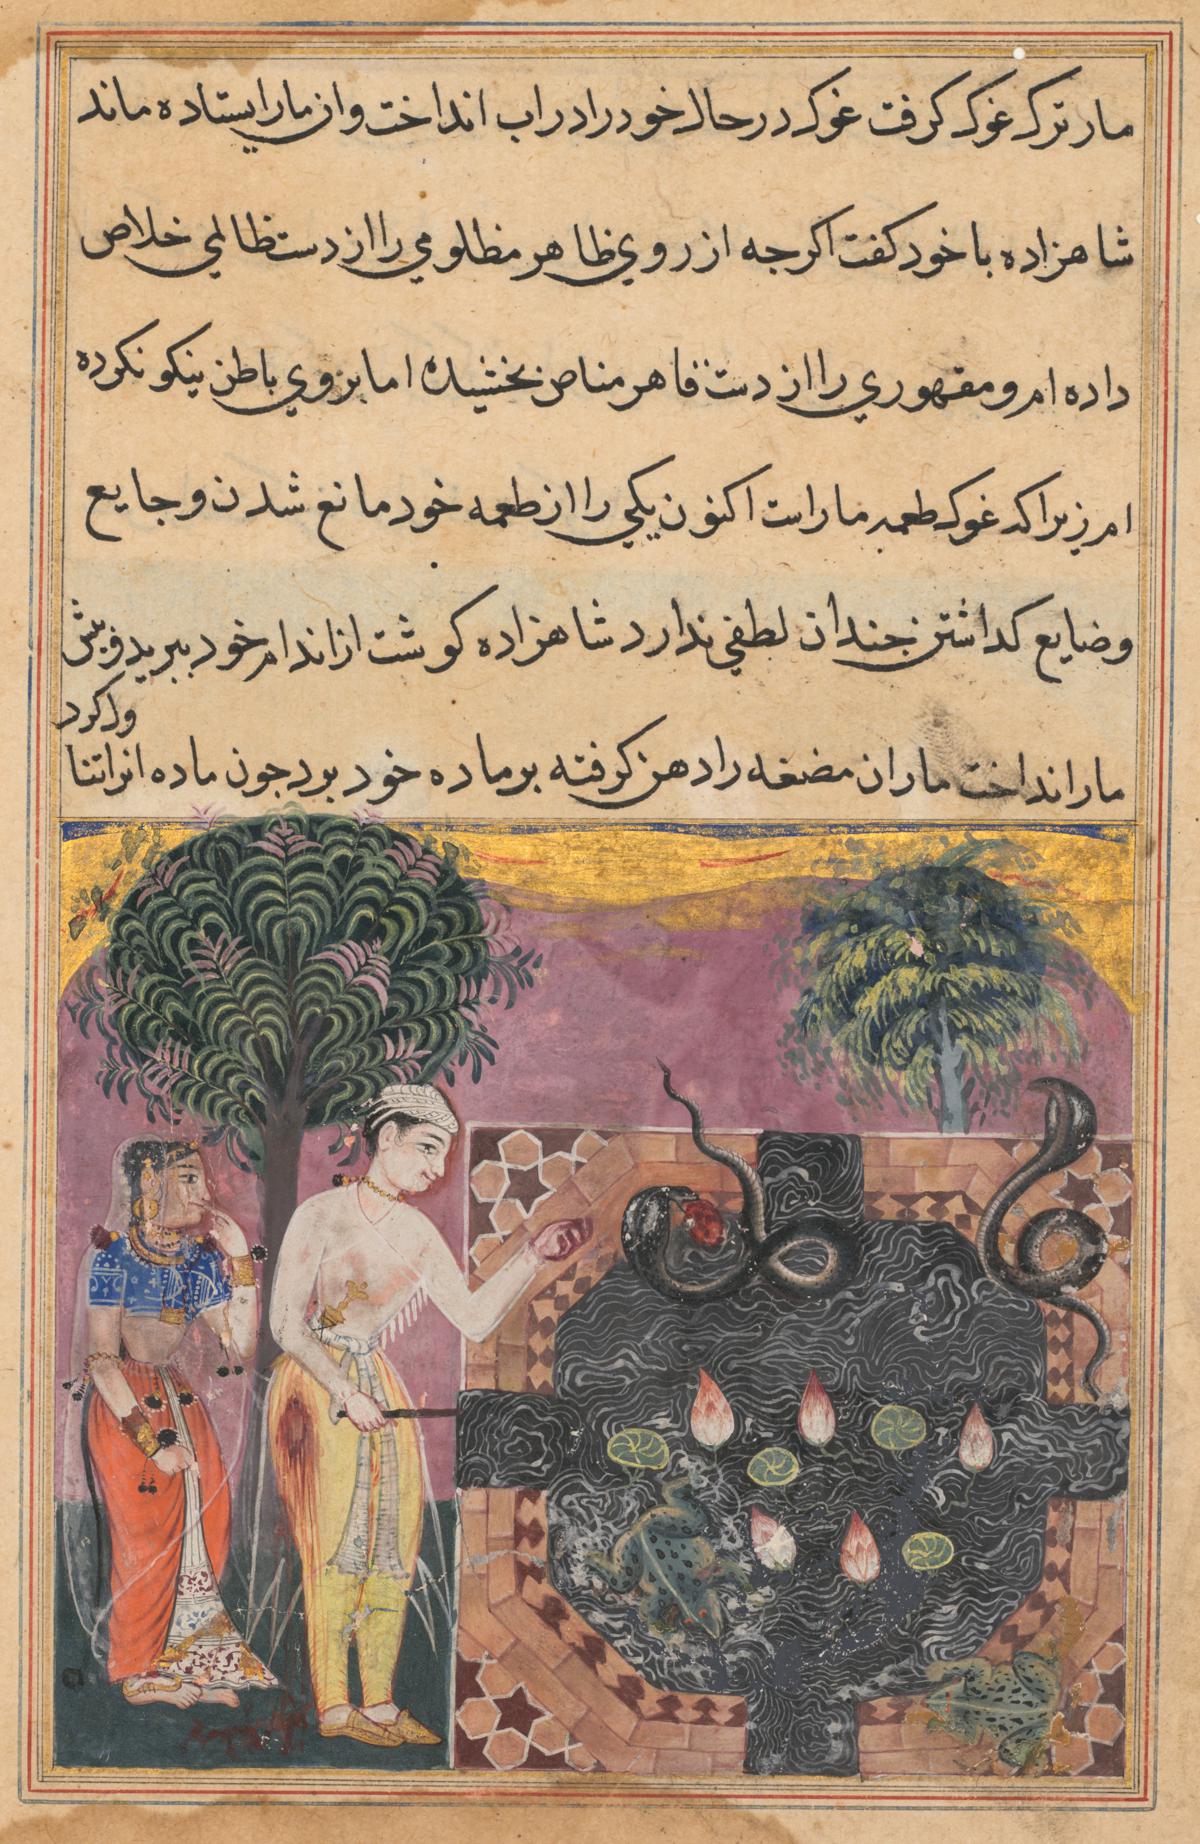 مار ترک غوک کرفت غوک در حال خود را در اب انداخت و ان مار ایستاده ماند
شاهزاده با خود کفت اکرجه از روی ظاهر مظلومی را از دست ظالمی خلاص
داده ام و مقهوری را از دست قاهر مناص بخشیده اما بروی باطن نیکو نکرده
ام زیرا که غوک طعمه مار است اکنون یکی را از طعمه خود مانع شدن و جایع
و ضایع کداشتن جندان لطفی ندارد شاهزاده کوشت از اندام خود ببرید و بیش
مار انداخت مار ان مضغه را در دهن کرفته بر ماده خود برد جون ماده انرا تنا
ول کرد